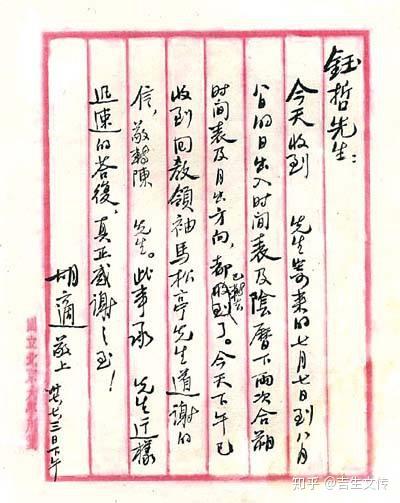 鈺哲先生：
今天收到　先生寄来的七月七日到八月
八日的日出入时间表及陰曆下两次合朔
时间表及月出方向，都收到了。今天下午已
收到回教領袖馬松亭先生道謝的
信，敬轉陳　先生。此事承　先生这樣
迅速的答復，真正感謝之至！
胡適敬上　卅七三日下午
國立北京大學用箋
知乎 @吉生文传